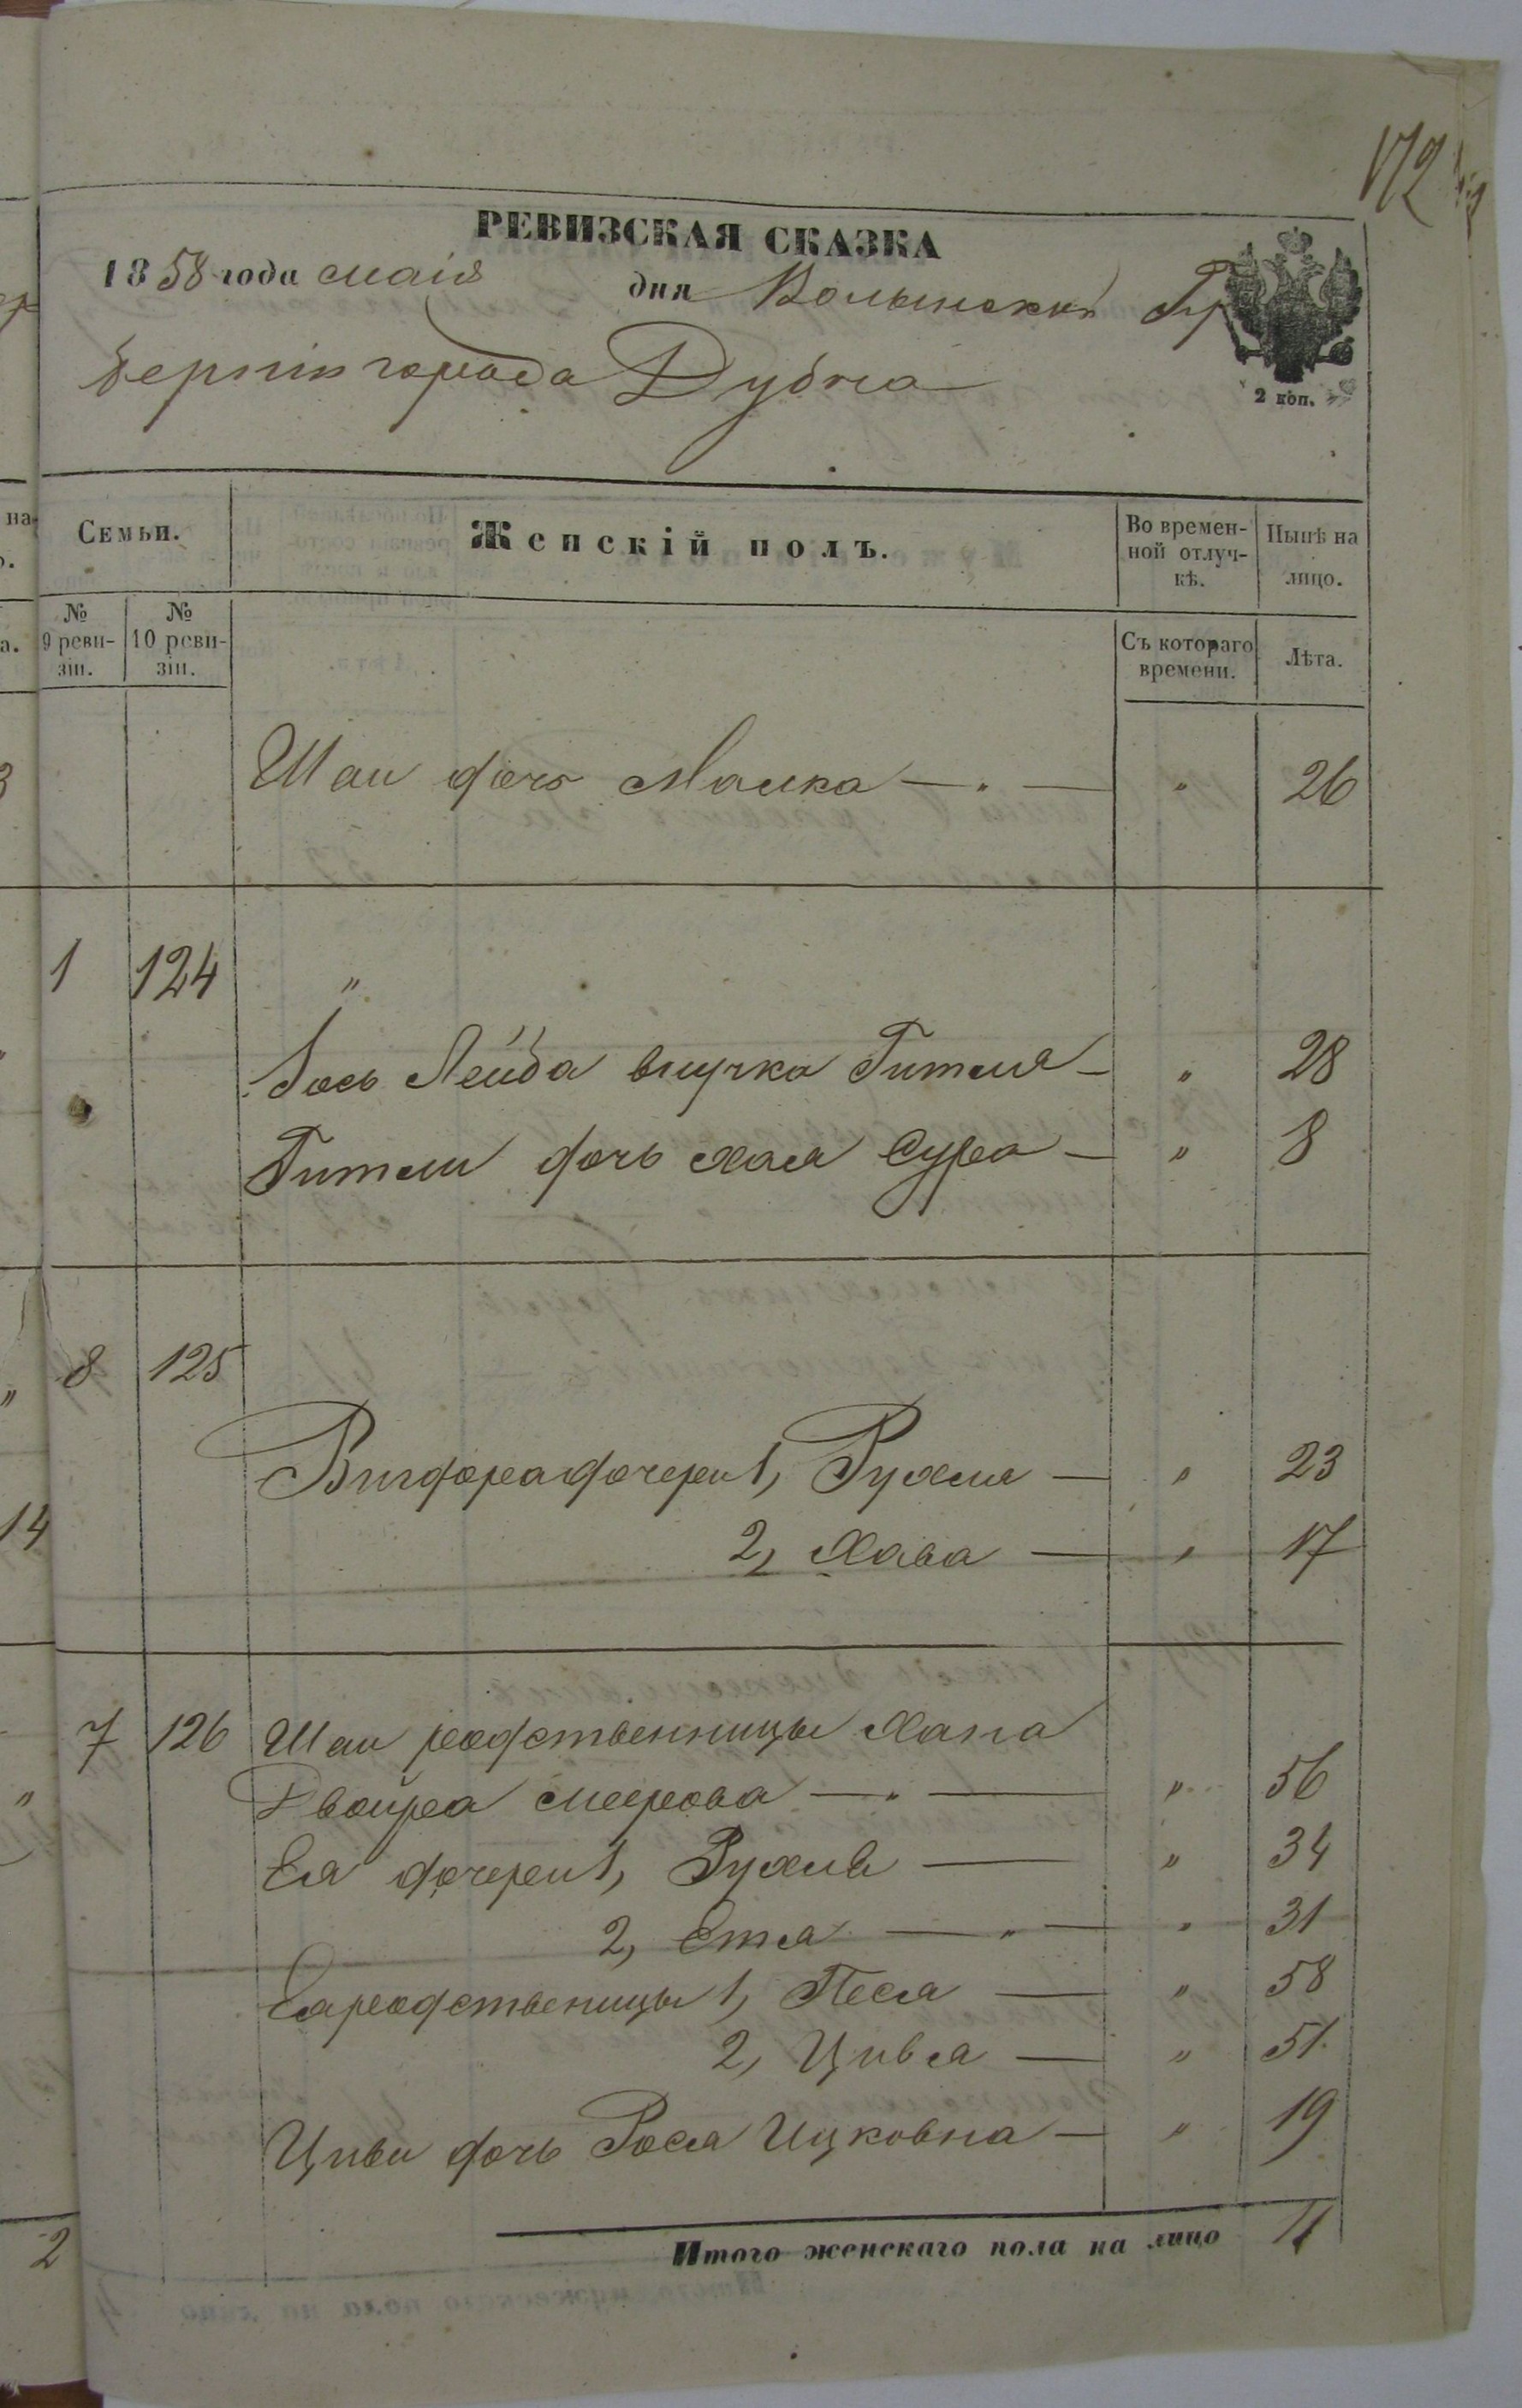 172
РЕВИЗСКАЯ СКАЗКА
1858 года маія дня Волынской Гу
берніи города Дубна
2 коп.
Семьи. Женскій полъ. Во времен-ной отлуч-кѣ. Нынѣ на лицо.
№ 9 реви-зіи. № 10 реви-зіи. Съ котораго времени. Лѣта.
Шаи дочь Малка — „ — „ 26
1 124 „
Лейба внучка Гитля — „ 28
Гитли дочь Хая Сура — „ 8
8 125
Вигдора дочери 1, Рухля — „ 23
2, Хава — „ 17
7 126 Шаи родственницы Хана
Двойра Меерова — „ — „ 56
Ея дочери 1, Рухля — „ 34
2, Етя — „ — „ 31
Ея родственицы 1, Песя — „ 58
2, Цивя — „ 51
Циви дочь Рося Ицковна — „ 19
Итого женскаго пола на лицо 11